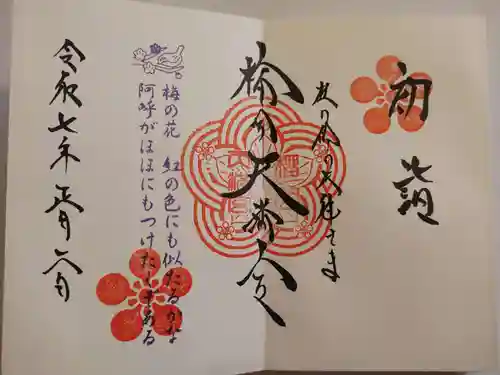 初詣
の天神さま
天満宮
梅の花 紅の色にも似たるかな
阿呼がほほにもつけたくぞある
令和七年正月六日